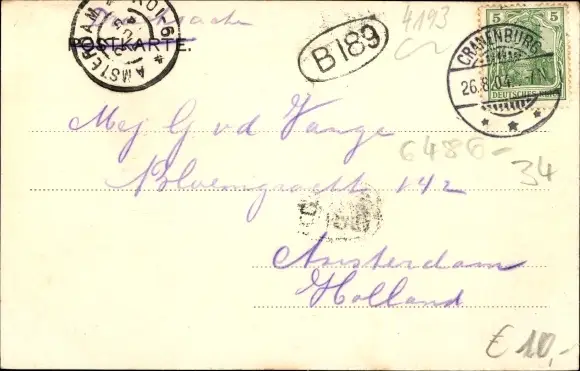 Drucksache
POSTKARTE.
AMSTERDAM
B189
4193
5 5
DEUTSCHES REICH
CRANENBURG
26.8.04
Mej G v d Vange
6486-
34
Bloemgracht 142
Amsterdam
Holland
€ 10,-